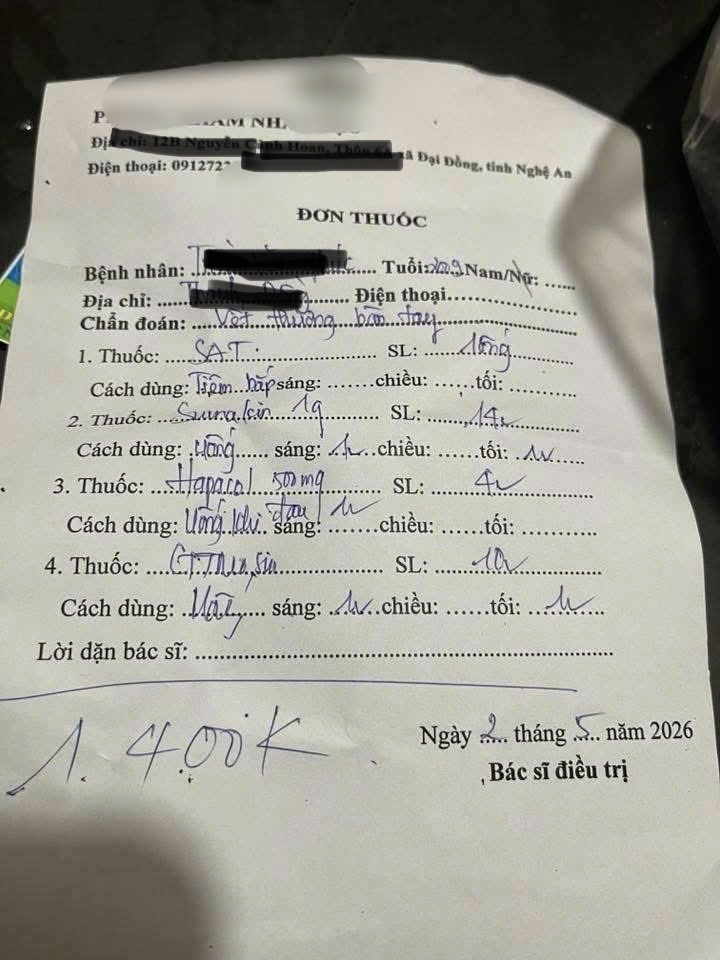 Địa chỉ: 12B Nguyễn Cảnh Hoan, Thôn xã Đại Đồng, tỉnh Nghệ An
Điện thoại: 091272
ĐƠN THUỐC
Bệnh nhân: Tuổi: Nam/Nữ:
Địa chỉ: Điện thoại
Chẩn đoán: Vết thương bàn tay
1. Thuốc: SAT. SL: 1 ống
Cách dùng: Tiêm bắp sáng: chiều: tối:
2. Thuốc: 1g SL: 14v
Cách dùng: uống sáng: 1v chiều: tối: 1v
3. Thuốc: Hapacol 500mg SL: 4v
Cách dùng: Uống khi đau 1v sáng: chiều: tối:
4. Thuốc: SL: 10v
Cách dùng: Uống sáng: 1v chiều: tối: 1v
Lời dặn bác sĩ:
1.400K
Ngày 2 tháng 5 năm 2026
Bác sĩ điều trị